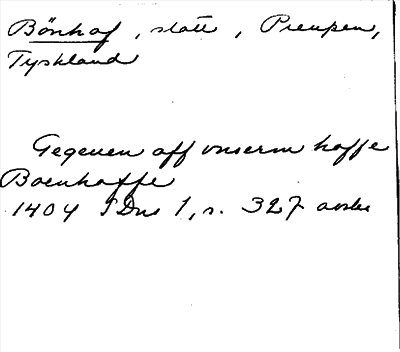 Bönhof, slott, Preuszen,
Tyskland
Gegeuen aff vnserm hoffe
Boenhoffe
1404 SDns 1, s. 327 avskr